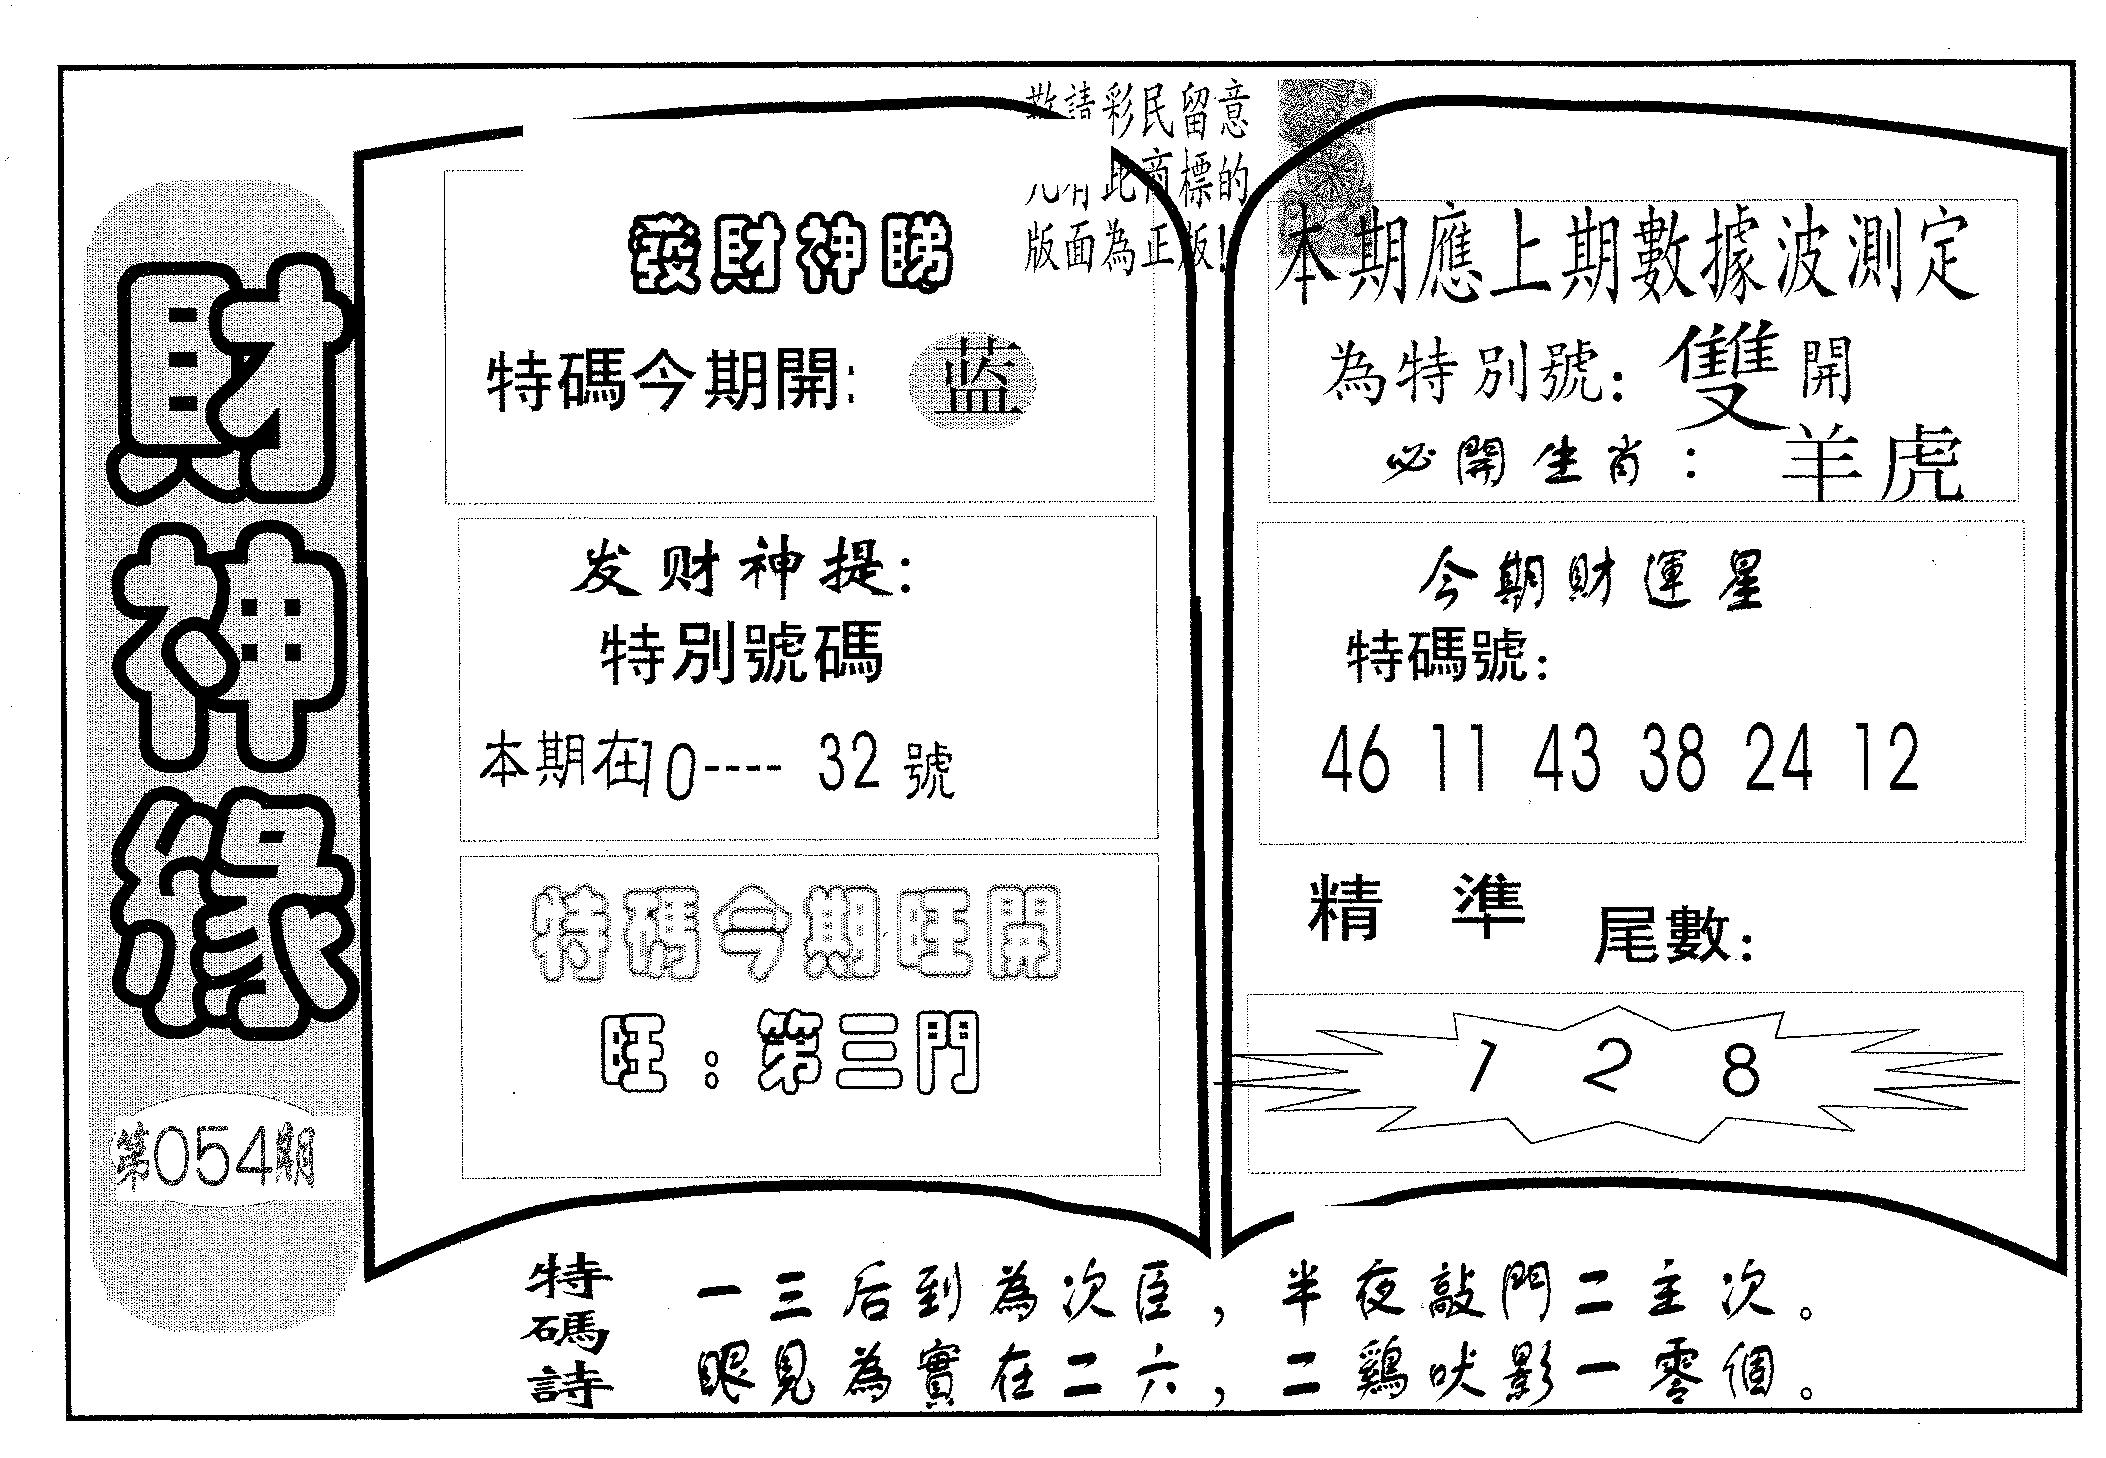 財神緣
第054期
敬請彩民留意
凡有此商標的
版面為正版!
發財神睇
特碼今期開:蓝
发财神提:
特別號碼
本期在10----32號
特碼今期旺開
旺:第三門
本期應上期數據波測定
為特別號:雙開
必開生肖:羊虎
今期財運星
特碼號:
46 11 43 38 24 12
精準尾數:
1 2 8
特碼詩
一三后到為次臣,半夜敲門二主次。
眼見為實在二六,二鷄吠影一零個。